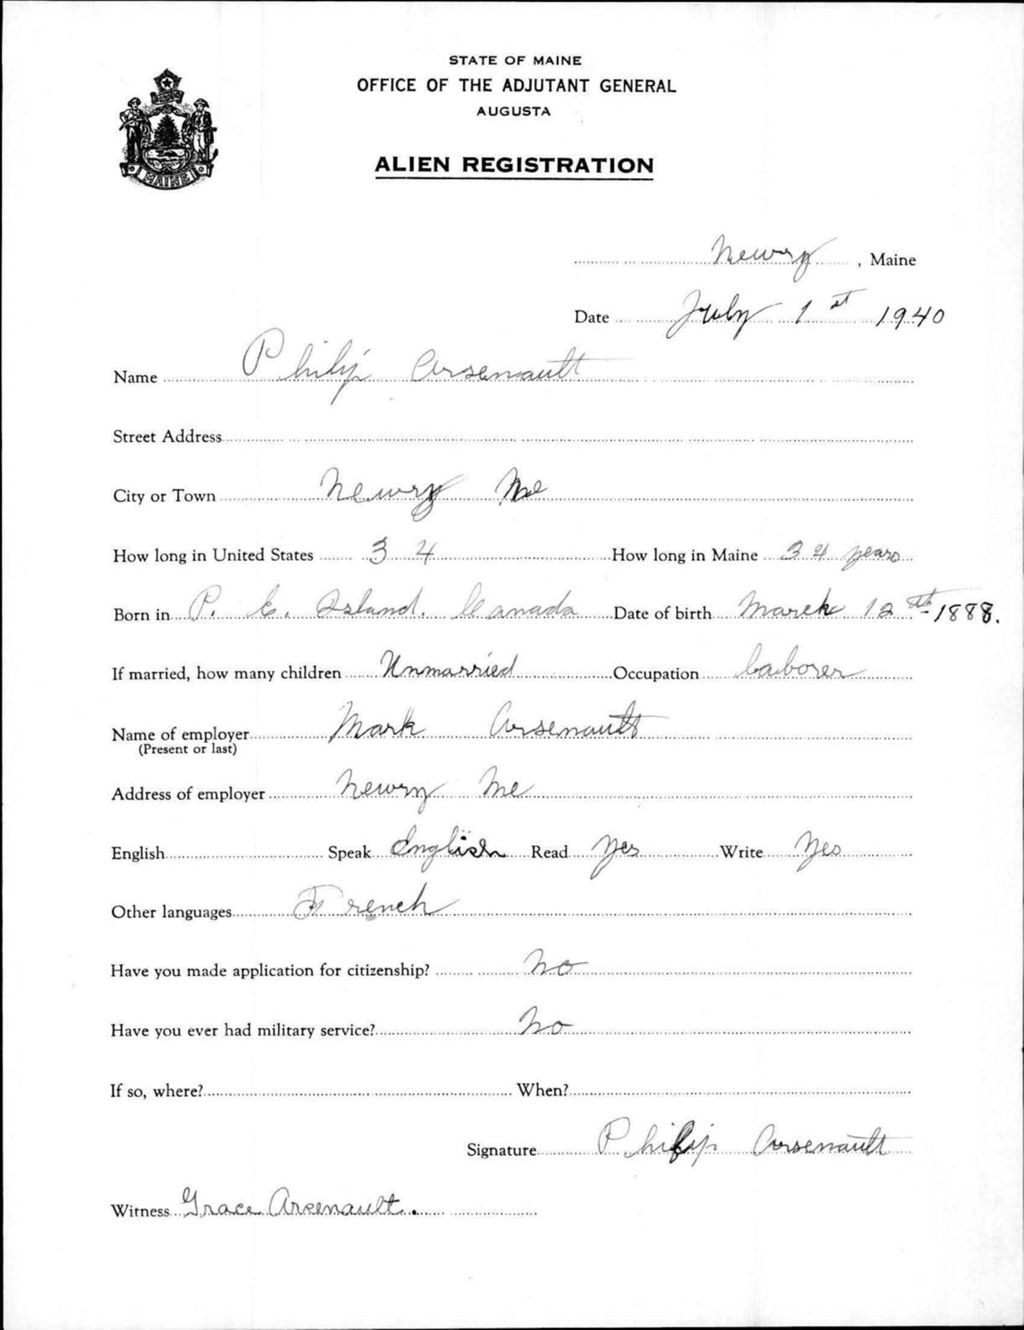 STATE OF MAINE
OFFICE OF THE ADJUTANT GENERAL
AUGUSTA
ALIEN REGISTRATION
MAINE
Newry, Maine
Date July 1st 1940
Name Philip Arsenault
Street Address
City or Town Newry Me
How long in United States 34 How long in Maine 34 years
Born in P. E. Island, Canada Date of birth March 12th 1888.
If married, how many children Unmarried Occupation laborer
Name of employer Mark Arsenault
(Present or last)
Address of employer Newry Me
English Speak English Read Yes Write Yes
Other languages French
Have you made application for citizenship? No
Have you ever had military service? No
If so, where? When?
Signature Philip Arsenault
Witness Grace Arsenault.